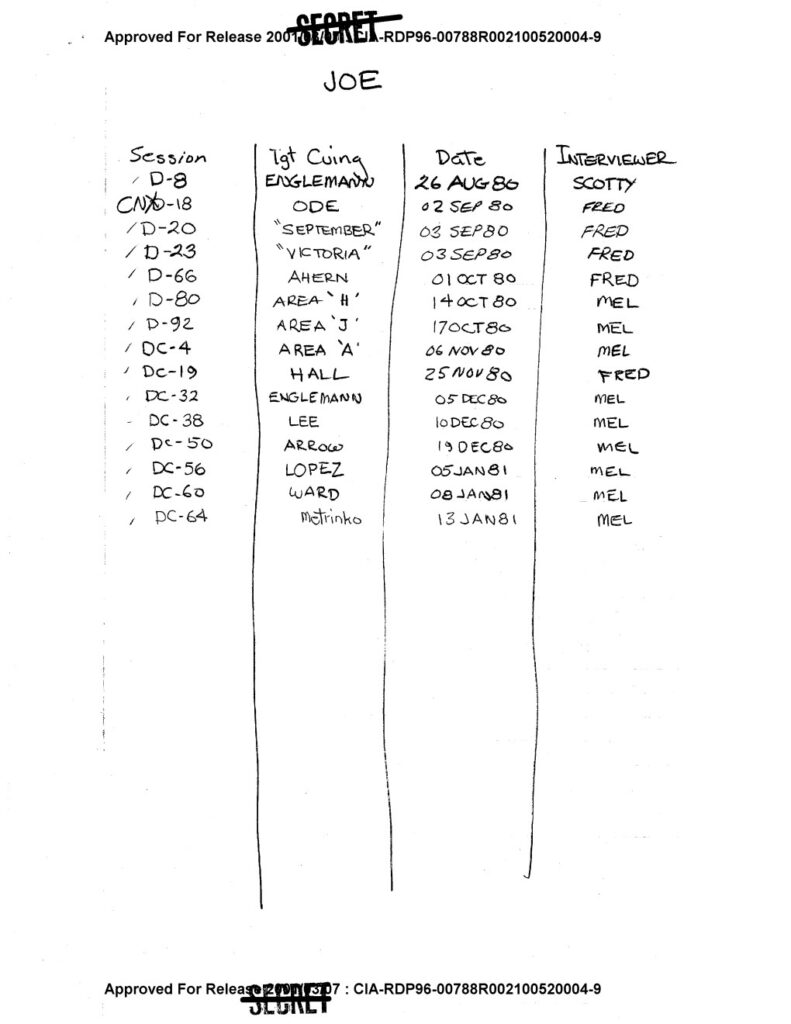 SECRET
Approved For Release 2001/03/07 : CIA-RDP96-00788R002100520004-9
JOE
Session Tgt Cuing Date INTERVIEWER
D-8 ENGLEMANN 26 AUG 80 SCOTTY
D-18 ODE 02 SEP 80 FRED
D-20 "SEPTEMBER" 03 SEP 80 FRED
D-23 "VICTORIA" 03 SEP 80 FRED
D-66 AHERN 01 OCT 80 FRED
D-80 AREA 'H' 14 OCT 80 MEL
D-92 AREA 'J' 17 OCT 80 MEL
DC-4 AREA 'A' 06 NOV 80 MEL
DC-19 HALL 25 NOV 80 FRED
DC-32 ENGLEMANN 05 DEC 80 MEL
DC-38 LEE 10 DEC 80 MEL
DC-50 ARROW 19 DEC 80 MEL
DC-56 LOPEZ 05 JAN 81 MEL
DC-60 WARD 08 JAN 81 MEL
DC-64 Metrinko 13 JAN 81 MEL
Approved For Release 2001/03/07 : CIA-RDP96-00788R002100520004-9
SECRET